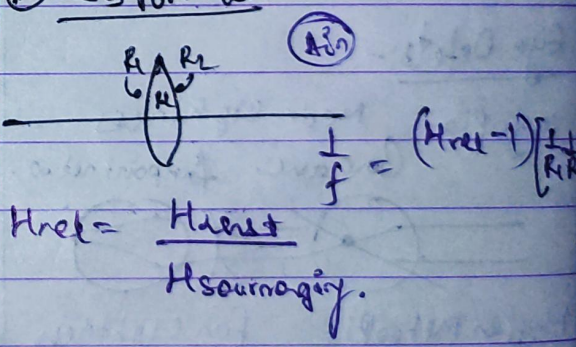 Air
R₁ R₂
μ
1/f = (μrel - 1) [1/R₁
μrel = μlens / μsurrounding.